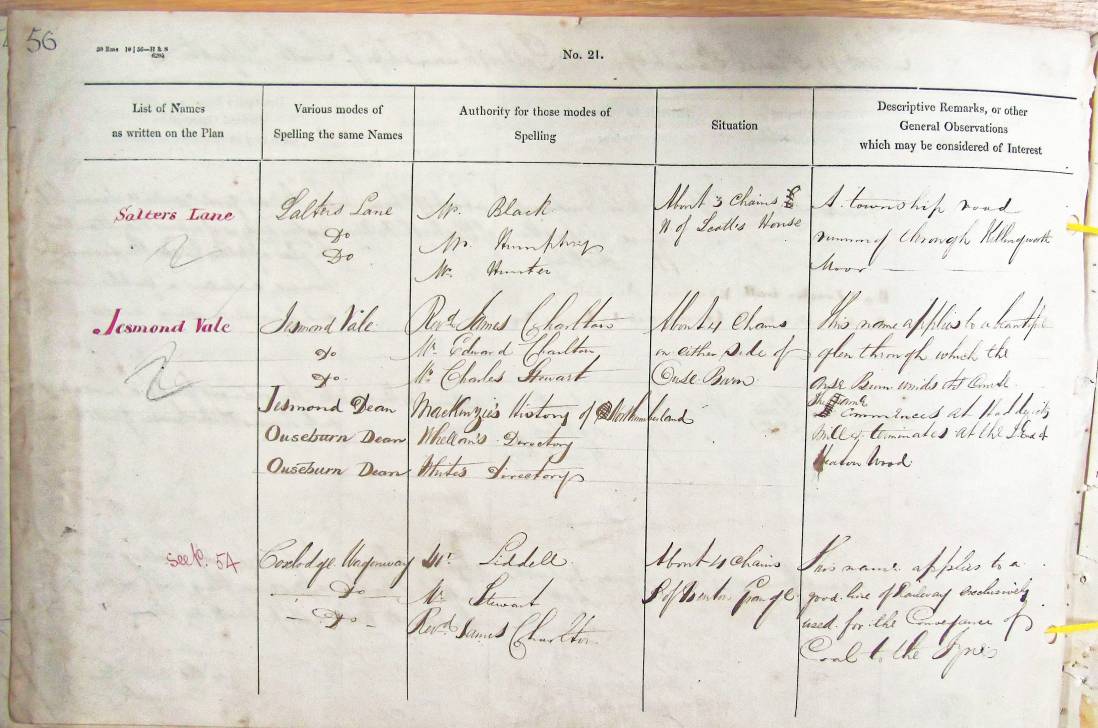 56
No. 21.
List of Names
as written on the Plan
Various modes of
Spelling the same Names
Authority for those modes of
Spelling
Situation
Descriptive Remarks, or other
General Observations
which may be considered of Interest
Salters Lane
Salters Lane
Do
Do
Mr. Black
Mr. Humphrey
Mr. Hunter
About 3 Chains
N of Scott's House
A township road
running through Killingworth
Moor
Jesmond Vale
Jesmond Vale
Do
Do
Jesmond Dean
Ouseburn Dean
Ouseburn Dean
Revd. James Charlton
Mr. Edward Charlton
Mr. Charles Stewart
MacKenzie's History of Northumberland
Whellan's Directory
Whites Directory
About 4 Chains
on either side of
Ouse Burn
This name applies to a beautiful
glen through which the
Ouse Burn winds its Course
The name
Commences at Haddricks
Mill & terminates at the S. End of
Heaton Wood
See P. 54
Coxlodge Wagonway
Do
Do
Mr. Liddell
Mr. Stewart
Revd. James Charlton
About 4 Chains
S of Benton Grange
This name applies to a
good line of Railway exclusively
used for the Conveyance of
Coal to the Tyne